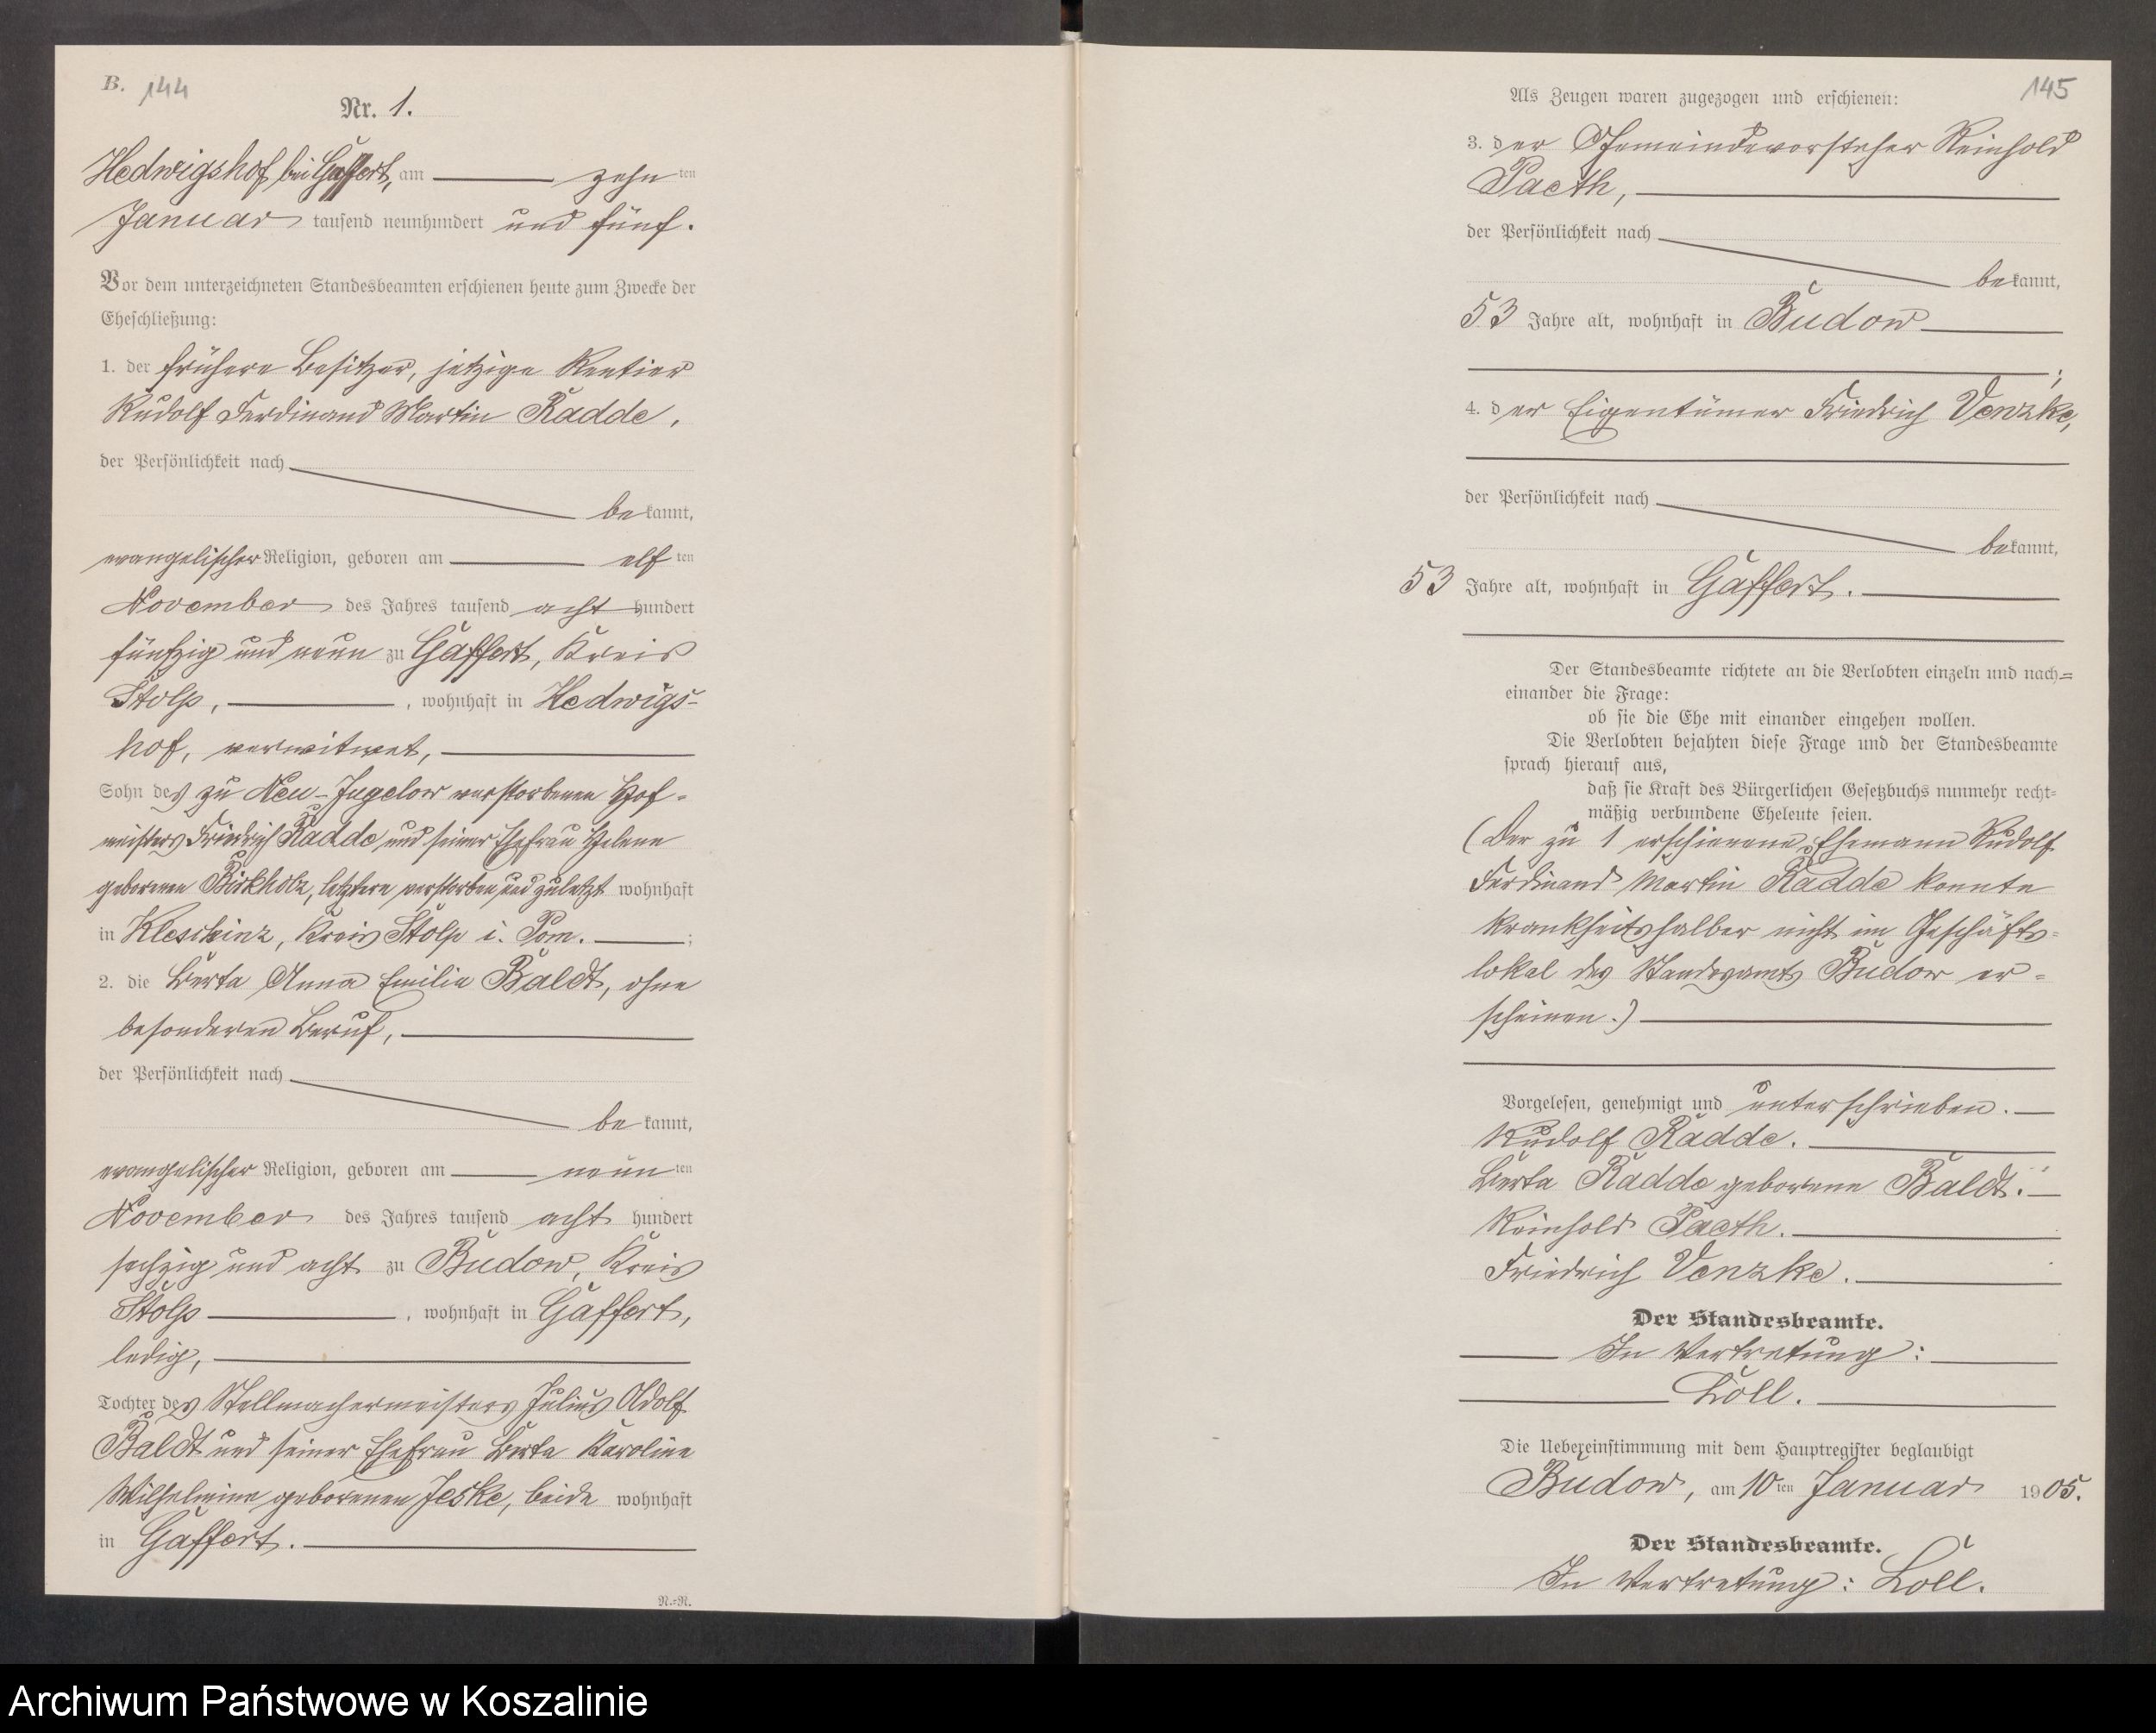 B. 144
Nr. 1.
Hedwigshof bei Gaffert, am zehn ten
Januar tausend neunhundert und fünf.
Vor dem unterzeichneten Standesbeamten erschienen heute zum Zwecke der
Eheschließung:
1. der frühere Besitzer, jetzige Rentier
Rudolf Ferdinand Martin Radde,
der Persönlichkeit nach
be kannt,
evangelischer Religion, geboren am elf ten
November des Jahres tausend acht hundert
fünfzig und neun zu Gaffert, Kreis
Stolp, , wohnhaft in Hedwigs-
hof, verwitwet,
Sohn des zu Neu-Jugelow verstorbenen Hof-
meisters Friedrich Radde und seiner Ehefrau Helene
geborenen Birkholz, letztere verstorben und zuletzt wohnhaft
in Kleschinz, Kreis Stolp i. Pom. ;
2. die Berta Anna Emilie Baldt, ohne
besonderen Beruf,
der Persönlichkeit nach
be kannt,
evangelischer Religion, geboren am neun ten
November des Jahres tausend acht hundert
sechzig und acht zu Budow, Kreis
Stolp , wohnhaft in Gaffert,
ledig,
Tochter des Stellmachermeisters Julius Adolf
Baldt und seiner Ehefrau Berta Karoline
Wilhelmine geborenen Jeske, beide wohnhaft
in Gaffert.
N.=N.
145
Als Zeugen waren zugezogen und erschienen:
3. der Gemeindevorsteher Reinhold
Paeth,
der Persönlichkeit nach
be kannt,
53 Jahre alt, wohnhaft in Budow
;
4. der Eigentümer Friedrich Venzke,
der Persönlichkeit nach
be kannt,
53 Jahre alt, wohnhaft in Gaffert.
Der Standesbeamte richtete an die Verlobten einzeln und nach=
einander die Frage:
ob sie die Ehe mit einander eingehen wollen.
Die Verlobten bejahten diese Frage und der Standesbeamte
sprach hierauf aus,
daß sie Kraft des Bürgerlichen Gesetzbuchs nunmehr recht=
mäßig verbundene Eheleute seien.
(Der zu 1 erschienene Ehemann Rudolf
Ferdinand Martin Radde konnte
krankheitshalber nicht im Geschäfts-
lokal des Standesamts Budow er-
scheinen.)
Vorgelesen, genehmigt und unterschrieben.
Rudolf Radde.
Berta Radde geborene Baldt.
Reinhold Paeth.
Friedrich Venzke.
Der Standesbeamte.
In Vertretung:
Löll.
Die Uebereinstimmung mit dem Hauptregister beglaubigt
Budow, am 10 ten Januar 1905.
Der Standesbeamte.
In Vertretung: Löll.
Archiwum Państwowe w Koszalinie